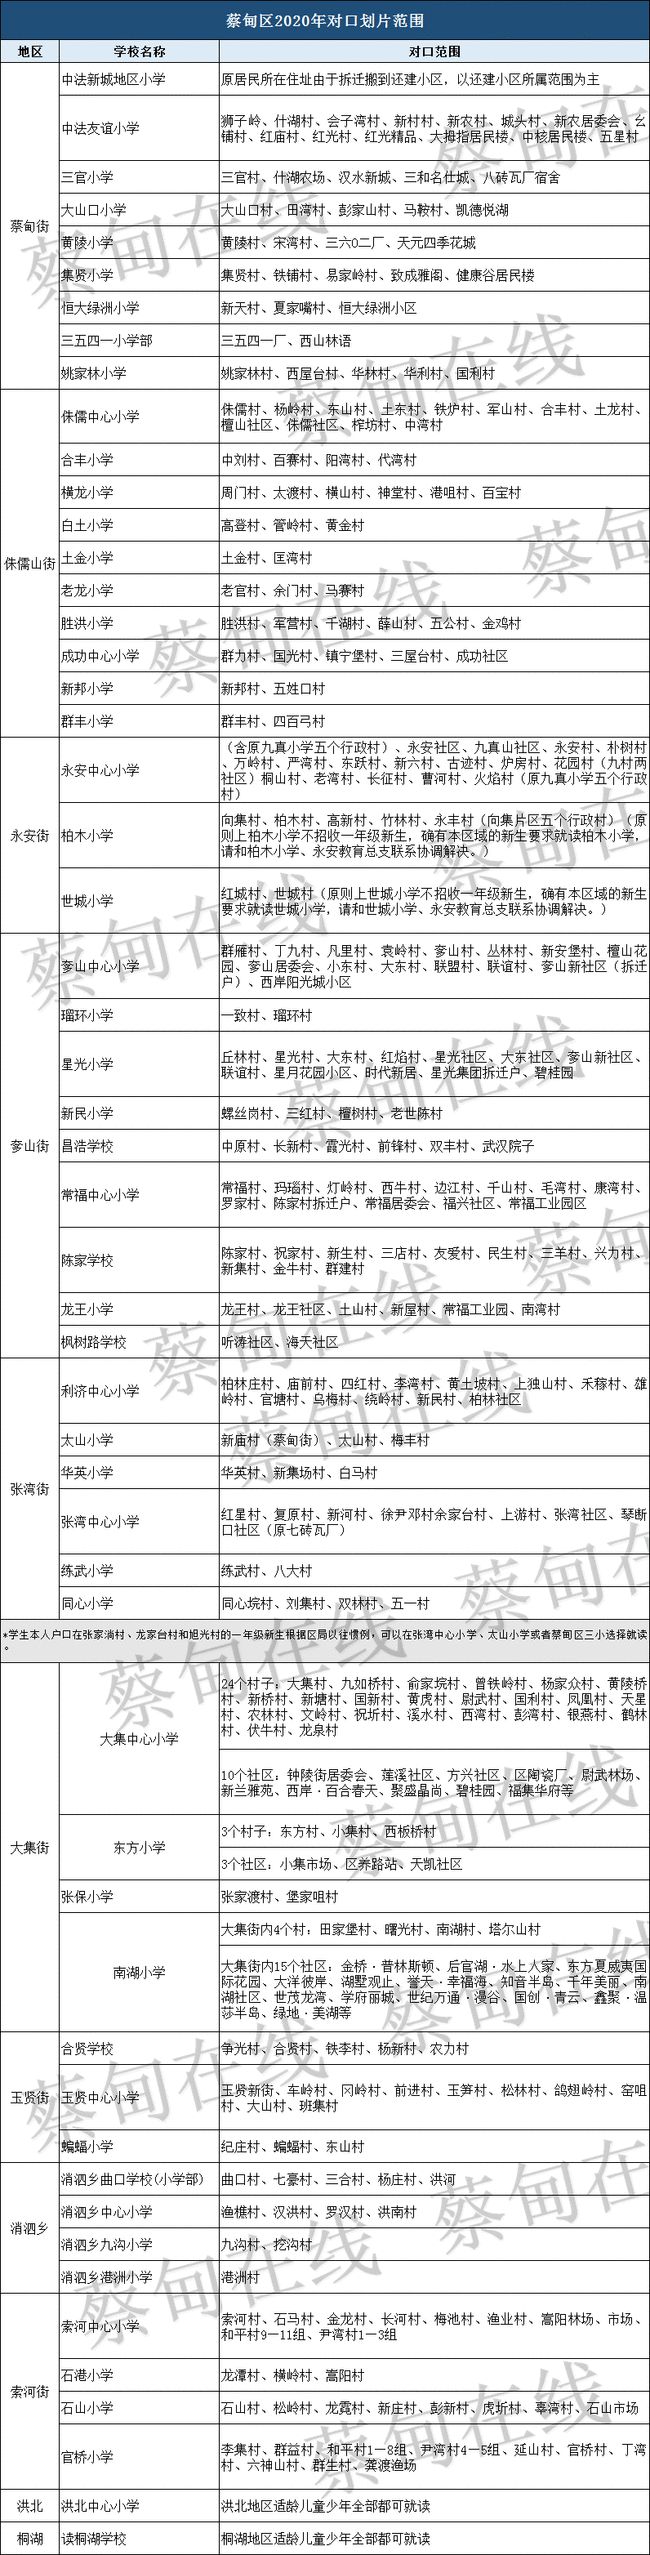 蔡甸区2020年对口划片范围
地区 学校名称 对口范围
蔡甸街
中法新城地区小学 原居民所在住址由于拆迁搬到还建小区，以还建小区所属范围为主
中法友谊小学 狮子岭、什湖村、会子湾村、新村村、新农村、城头村、新农居委会、幺
铺村、红庙村、红光村、红光精品、大拇指居民楼、中核居民楼、五星村
三官小学 三官村、什湖农场、汉水新城、三和名仕城、八砖瓦厂宿舍
大山口小学 大山口村、田湾村、彭家山村、马鞍村、凯德悦湖
黄陵小学 黄陵村、宋湾村、三六0二厂、天元四季花城
集贤小学 集贤村、铁铺村、易家岭村、致成雅阁、健康谷居民楼
恒大绿洲小学 新天村、夏家嘴村、恒大绿洲小区
三五四一小学部 三五四一厂、西山林语
姚家林小学 姚家林村、西屋台村、华林村、华利村、国利村
侏儒山街
侏儒中心小学 侏儒村、杨岭村、东山村、土东村、铁炉村、军山村、合丰村、土龙村、
檀山社区、侏儒社区、榨坊村、中湾村
合丰小学 中刘村、百赛村、阳湾村、代湾村
横龙小学 周门村、太渡村、横山村、神堂村、港咀村、百宝村
白土小学 高登村、管岭村、黄金村
土金小学 土金村、匡湾村
老龙小学 老官村、余门村、马赛村
胜洪小学 胜洪村、军营村、千湖村、薛山村、五公村、金鸡村
成功中心小学 群力村、国光村、镇宁堡村、三屋台村、成功社区
新邦小学 新邦村、五姓口村
群丰小学 群丰村、四百弓村
永安街
永安中心小学 （含原九真小学五个行政村）、永安社区、九真山社区、永安村、朴树村
、万岭村、严湾村、东跃村、新六村、古迹村、炉房村、花园村（九村两
社区）桐山村、老湾村、长征村、曹河村、火焰村（原九真小学五个行政
村）
柏木小学 向集村、柏木村、高新村、竹林村、永丰村（向集片区五个行政村）（原
则上柏木小学不招收一年级新生，确有本区域的新生要求就读柏木小学，
请和柏木小学、永安教育总支联系协调解决。）
世城小学 红城村、世城村（原则上世城小学不招收一年级新生，确有本区域的新生
要求就读世城小学，请和世城小学、永安教育总支联系协调解决。）
奓山街
奓山中心小学 群雁村、丁九村、凡里村、袁岭村、奓山村、丛林村、新安堡村、檀山花
园、奓山居委会、小东村、大东村、联盟村、联谊村、奓山新社区（拆迁
户）、西岸阳光城小区
瑠环小学 一致村、瑠环村
星光小学 丘林村、星光村、大东村、红焰村、星光社区、大东社区、奓山新社区、
联谊村、星月花园小区、时代新居、星光集团拆迁户、碧桂园
新民小学 螺丝岗村、三红村、檀树村、老世陈村
昌浩学校 中原村、长新村、霞光村、前锋村、双丰村、武汉院子
常福中心小学 常福村、玛瑙村、灯岭村、西牛村、边江村、千山村、毛湾村、康湾村、
罗家村、陈家村拆迁户、常福居委会、福兴社区、常福工业园区
陈家学校 陈家村、祝家村、新生村、三店村、友爱村、民生村、三羊村、兴力村、
新集村、金牛村、群建村
龙王小学 龙王村、龙王社区、土山村、新屋村、常福工业园、南湾村
枫树路学校 听涛社区、海天社区
张湾街
利济中心小学 柏林庄村、庙前村、四红村、李湾村、黄土坡村、上独山村、禾稼村、雄
岭村、官塘村、乌梅村、绕岭村、新民村、柏林社区
太山小学 新庙村（蔡甸街）、太山村、梅丰村
华英小学 华英村、新集场村、白马村
张湾中心小学 红星村、复原村、新河村、徐尹邓村余家台村、上游村、张湾社区、琴断
口社区（原七砖瓦厂）
练武小学 练武村、八大村
同心小学 同心垸村、刘集村、双林村、五一村
*学生本人户口在张家淌村、龙家台村和旭光村的一年级新生根据区局以往惯例，可以在张湾中心小学、太山小学或者蔡甸区三小选择就读
。
大集街
大集中心小学 24个村子：大集村、九如桥村、俞家垸村、曾铁岭村、杨家众村、黄陵桥
村、新桥村、新塘村、国新村、黄虎村、尉武村、国利村、凤凰村、天星
村、农林村、文岭村、祝圻村、溪水村、西湾村、彭湾村、银燕村、鹤林
村、伏牛村、龙泉村
10个社区：钟陵街居委会、莲溪社区、方兴社区、区陶瓷厂、尉武林场、
新兰雅苑、西岸·百合春天、聚盛晶尚、碧桂园、福集华府等
东方小学 3个村子：东方村、小集村、西板桥村
3个社区：小集市场、区养路站、天凯社区
张保小学 张家渡村、堡家咀村
南湖小学 大集街内4个村：田家堡村、曙光村、南湖村、塔尔山村
大集街内15个社区：金桥·普林斯顿、后官湖·水上人家、东方夏威夷国
际花园、大洋彼岸、湖墅观止、誉天·幸福海、知音半岛、千年美丽、南
湖社区、世茂龙湾、学府丽城、世纪万通·漫谷、国创·青云、鑫聚·温
莎半岛、绿地·美湖等
玉贤街
合贤学校 争光村、合贤村、铁李村、杨新村、农力村
玉贤中心小学 玉贤新街、车岭村、冈岭村、前进村、玉笋村、松林村、鸽翅岭村、窑咀
村、大山村、班集村
蝙蝠小学 纪庄村、蝙蝠村、东山村
消泗乡
消泗乡曲口学校(小学部） 曲口村、七豪村、三合村、杨庄村、洪河
消泗乡中心小学 渔樵村、汉洪村、罗汉村、洪南村
消泗乡九沟小学 九沟村、挖沟村
消泗乡港洲小学 港洲村
索河街
索河中心小学 索河村、石马村、金龙村、长河村、梅池村、渔业村、嵩阳林场、市场、
和平村9－11组、尹湾村1－3组
石港小学 龙潭村、横岭村、嵩阳村
石山小学 石山村、松岭村、龙霓村、新庄村、彭新村、虎圻村、辜湾村、石山市场
官桥小学 李集村、群益村、和平村1－8组、尹湾村4－5组、延山村、官桥村、丁湾
村、六神山村、群生村、龚渡渔场
洪北 洪北中心小学 洪北地区适龄儿童少年全部都可就读
桐湖 读桐湖学校 桐湖地区适龄儿童少年全部都可就读
蔡甸在线